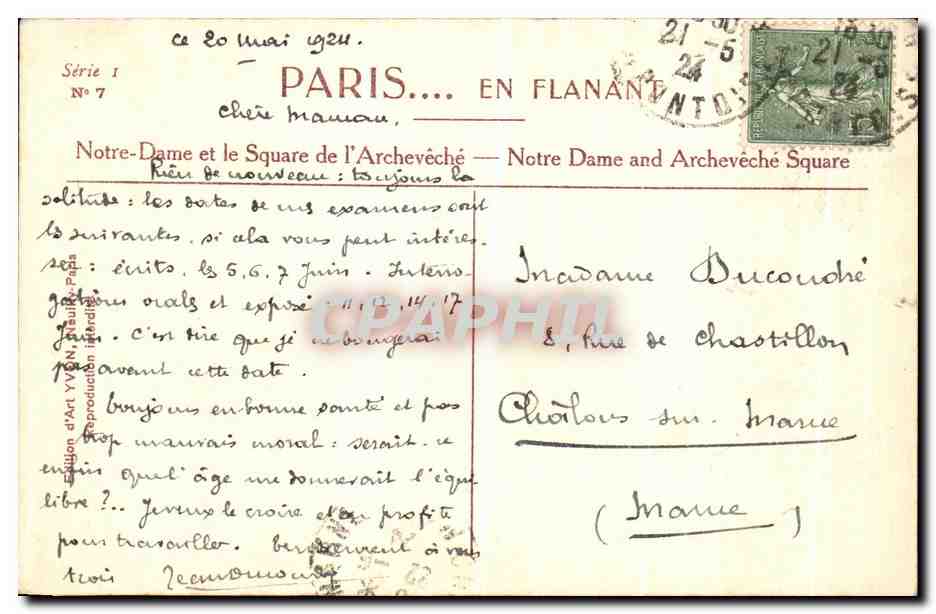 ce 20 Mai 1924.
Série 1
Nº 7
PARIS.... EN FLANANT
Chère Maman,
Notre-Dame et le Square de l'Archevêché — Notre Dame and Archevêché Square
Rien de nouveau : toujours la
solitude : les dates de mes examens sont
les suivantes, si cela vous peut intéres-
ser : écrits, les 5, 6, 7 Juin. Interro-
gations orales et exposé : 11, 12, 14, 17
Juin. C'est dire que je ne bougerai
pas avant cette date.
Toujours en bonne santé et pas
trop mauvais moral : serait-ce
enfin quel'âge me donnerait l'équi-
libre ?.. Je veux le croire et en profite
pour travailler. à vous
trois
Madame Ducoudré
8, Rue de Chastillon
Châlons sur Marne
(Marne)
Edition d'Art YVON, Neuilly-Paris
Reproduction interdite
21 -5
24
21 -5
REPUBLIQUE FRANÇAISE
CPAPHIL